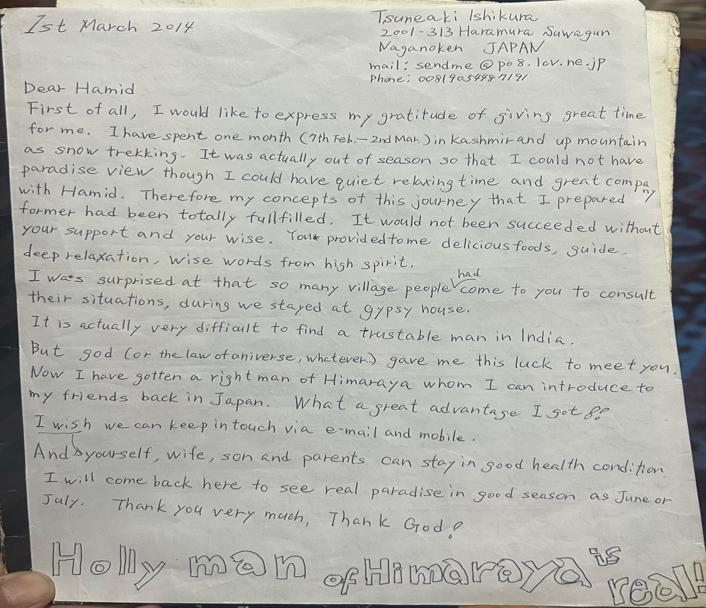 1st March 2014
Tsuneaki Ishikura
2001-313 Haramura Suwagun
Naganoken JAPAN
mail: sendme@po8.lcv.ne.jp
Phone: 008190 5448 7191
Dear Hamid
First of all, I would like to express my gratitude of giving great time
for me. I have spent one month (7th Feb.-2nd Mar.) in Kashmir and up mountain
as snow trekking. It was actually out of season so that I could not have
paradise view though I could have quiet relaxing time and great company
with Hamid. Therefore my concepts of this journey that I prepared
former had been totally fullfilled. It would not been succeeded without
your support and your wise. You provided to me delicious foods, guide,
deep relaxation, wise words from high spirit.
I was surprised at that so many village people had come to you to consult
their situations, during we stayed at gypsy house.
It is actually very difficult to find a trustable man in India.
But god (or the law of universe, whatever) gave me this luck to meet you.
Now I have gotten a right man of Himaraya whom I can introduce to
my friends back in Japan. What a great advantage I got !!
I wish we can keep in touch via e-mail and mobile.
And yourself, wife, son and parents can stay in good health condition.
I will come back here to see real paradise in good season as June or
July. Thank you very much, Thank God!
Holly man of Himaraya is real!